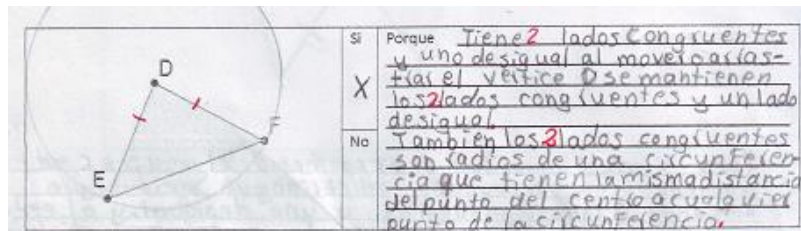 D
F
E
Si
X
No
Porque Tiene 2 lados congruentes
y uno desigual al mover o arras-
trar el vertice D se mantienen
los 2 lados congruentes y un lado
desigual.
Tambien los 2 lados congruentes
son radios de una circunferen-
cia que tienen la misma distancia
del punto del centro a cualquier
punto de la circunferencia.